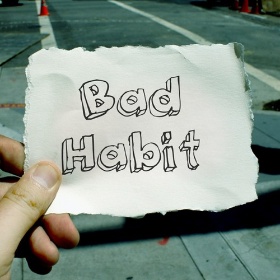 Bad
Habit